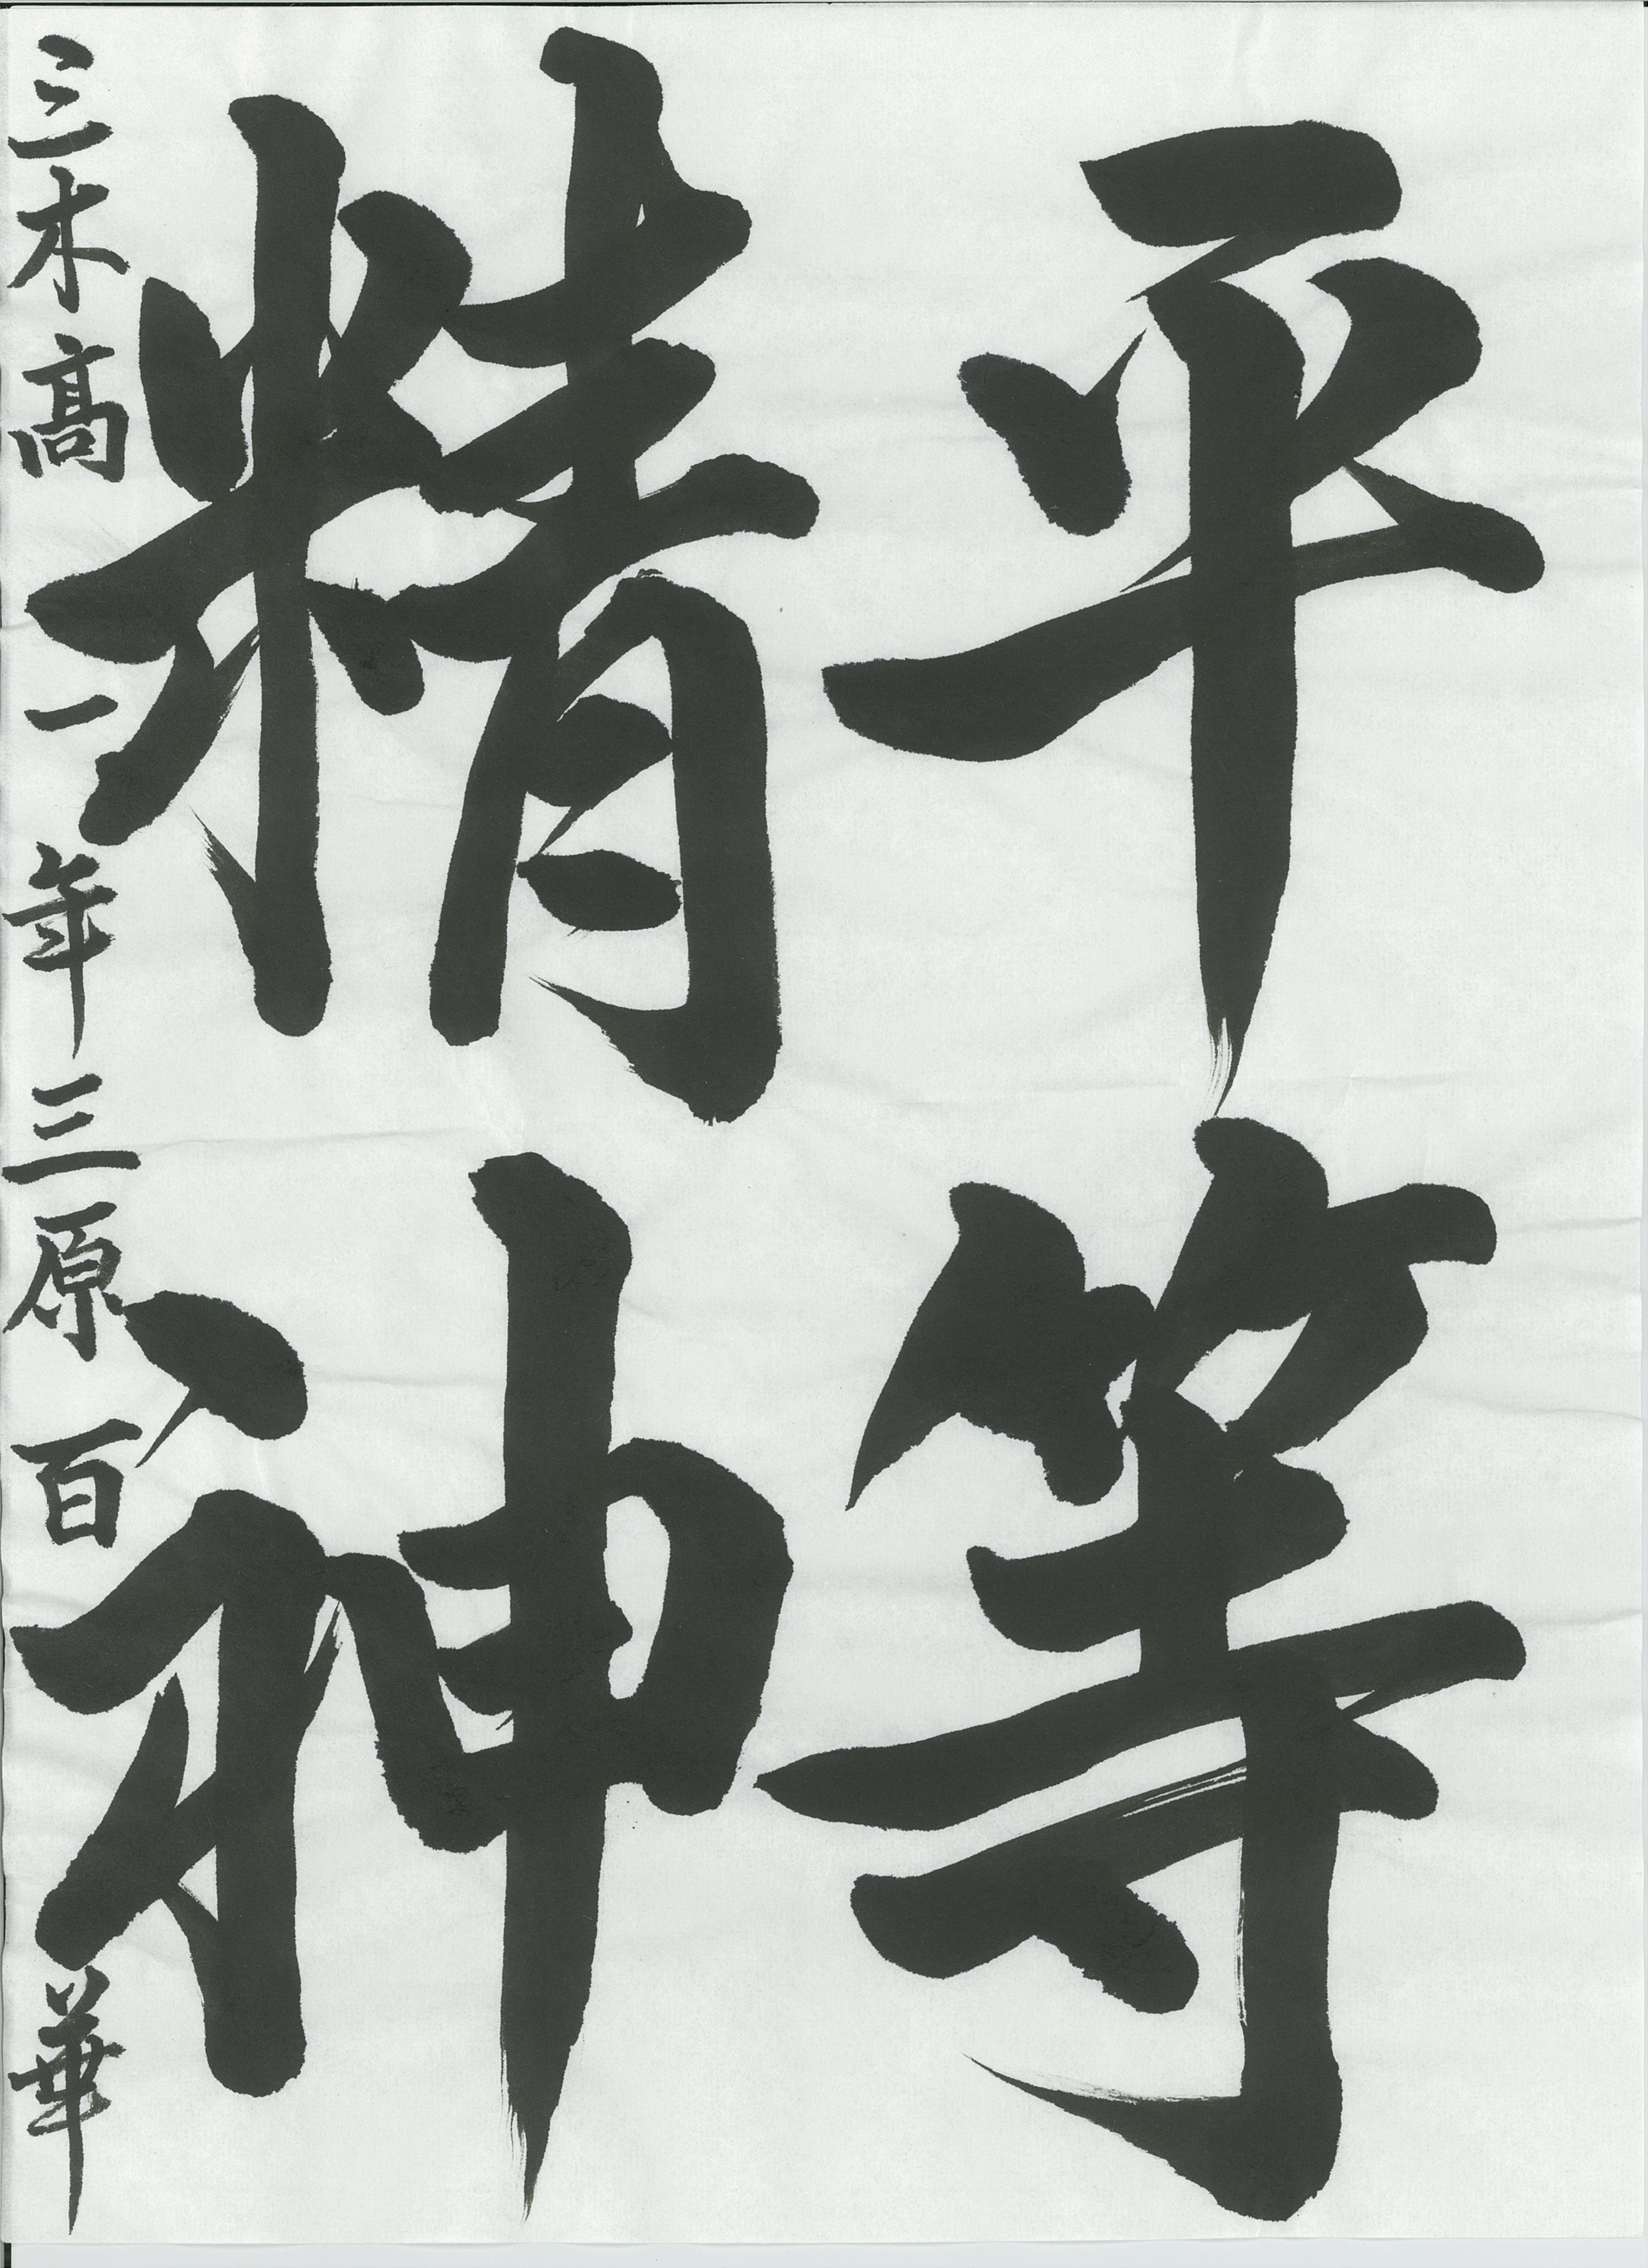 平等
精神
三木高 一年 三原 百華